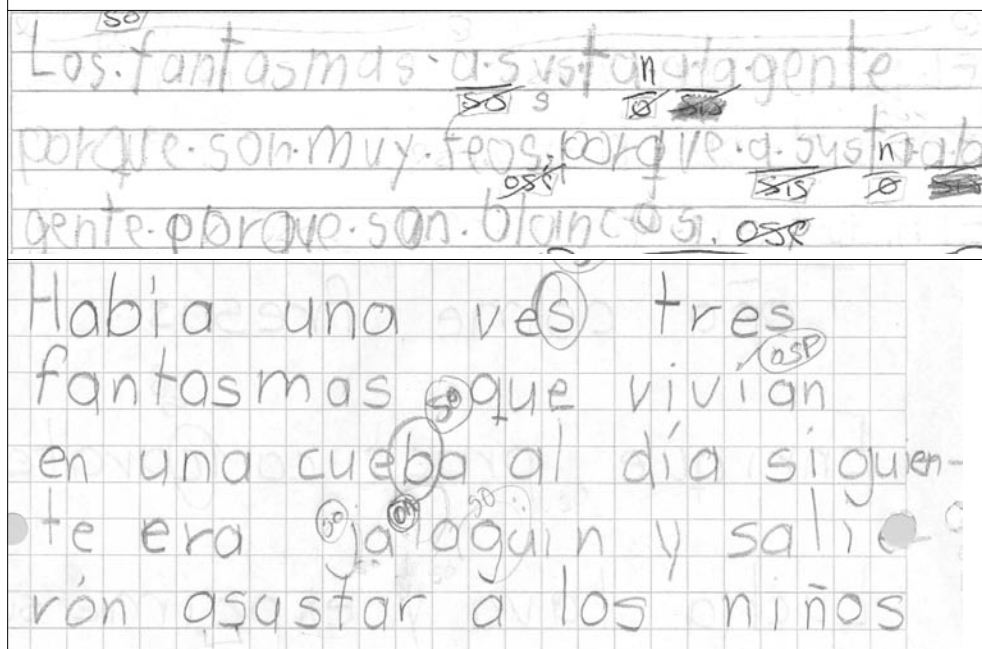 so
Los.fantasmas.a.sustan.a.la.gente
so s ø sis
porque.son.muy.feos.porque.a.sustn.ala
osp sis ø sis
gente.porque.son.blancos. osp
Había una ves tres
osp
fantasmas so que vivían
en una cueba al día siguien-
so on so
te era jaloguin y salie
rón asustar a los niños